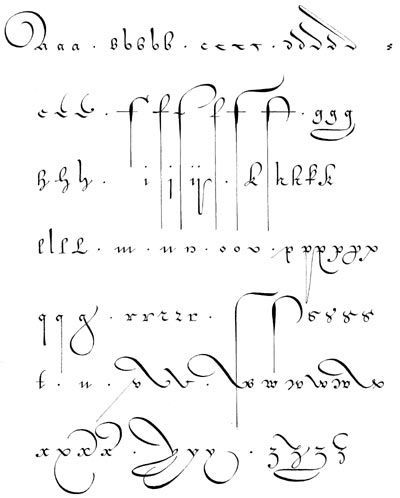 aaaa . bbbbb . cccc . ddddd . e
eee . f f ff f ff . ggg
hhh . i j ij . k kkkk
llll . m . nn . ooo . pppppp
qqq . rrrrr . ſ ſ ssss
t . u . vvv . wwwww
xxxx . yyy . zzzz